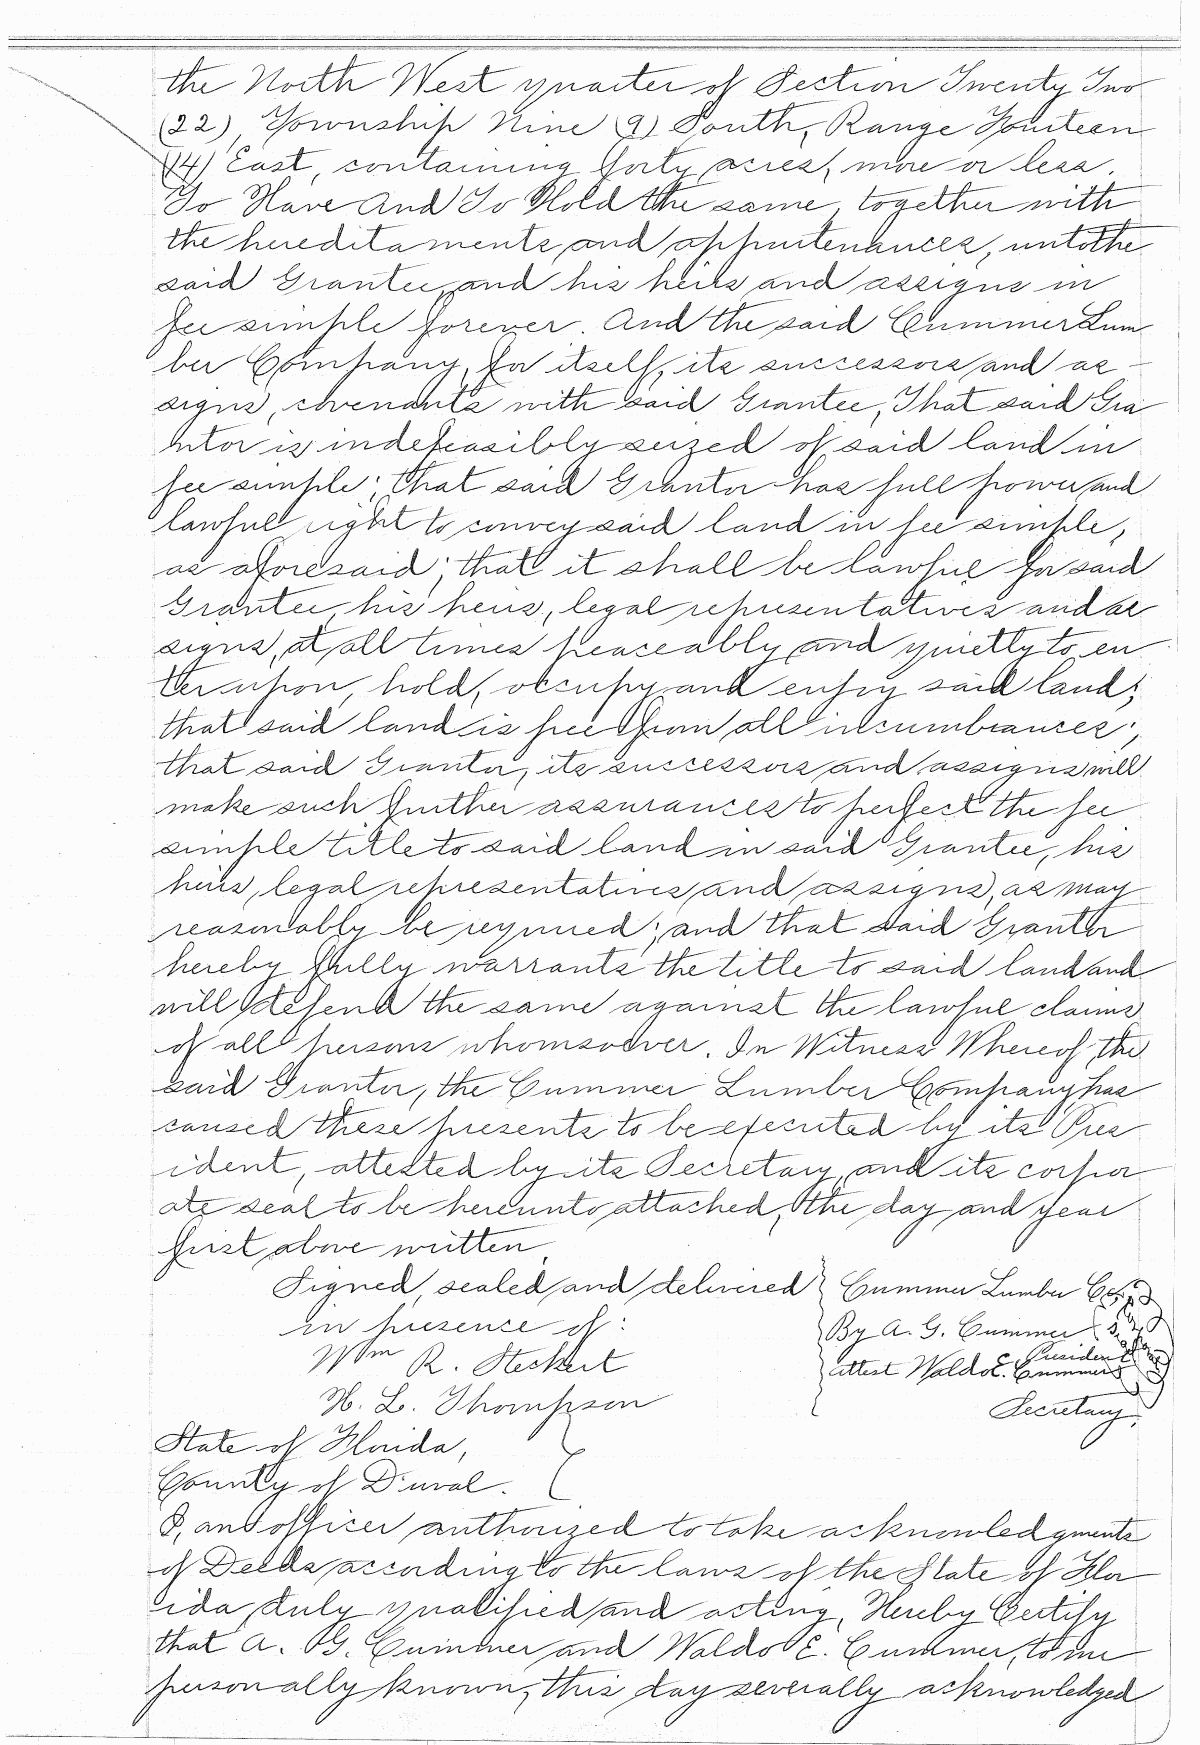 the North West quarter of Section Twenty Two
(22), Township Nine (9) South, Range Fourteen
(14) East, containing forty acres, more or less.
To Have And To Hold the same, together with
the hereditaments and appurtenances, unto the
said Grantee, and his heirs and assigns in
fee simple forever. And the said Cummer Lum
ber Company, for itself, its successors and as-
signs, covenants with said Grantee, That said Gra
ntor is indefeasibly seized of said land in
fee simple; that said Grantor has full power and
lawful right to convey said land in fee simple,
as aforesaid; that it shall be lawful for said
Grantee, his heirs, legal representatives and as
signs, at all times peaceably and quietly to en
ter upon, hold, occupy and enjoy said land;
that said land is free from all incumbrances;
that said Grantor, its successors and assigns will
make such further assurances to perfect the fee
simple title to said land in said Grantee, his
heirs, legal representatives and assigns, as may
reasonably be required; and that said Grantor
hereby fully warrants the title to said land and
will defend the same against the lawful claims
of all persons whomsoever. In Witness Whereof, the
said Grantor, the Cummer Lumber Company, has
caused these presents to be executed by its Pres
ident, attested by its Secretary, and its corpor
ate seal to be hereunto attached, the day and year
first above written.
Signed, sealed and delivered Cummer Lumber Co.
in presence of: By A. G. Cummer
President
Wm R. Steckert Attest Waldo E. Cummer
H. L. Thompson Secretary.
State of Florida,
County of Duval.
I, an officer authorized to take acknowledgments
of Deeds according to the laws of the State of Flor
ida, duly qualified and acting, Hereby Certify
that A. G. Cummer and Waldo E. Cummer, to me
personally known, this day severally acknowledged